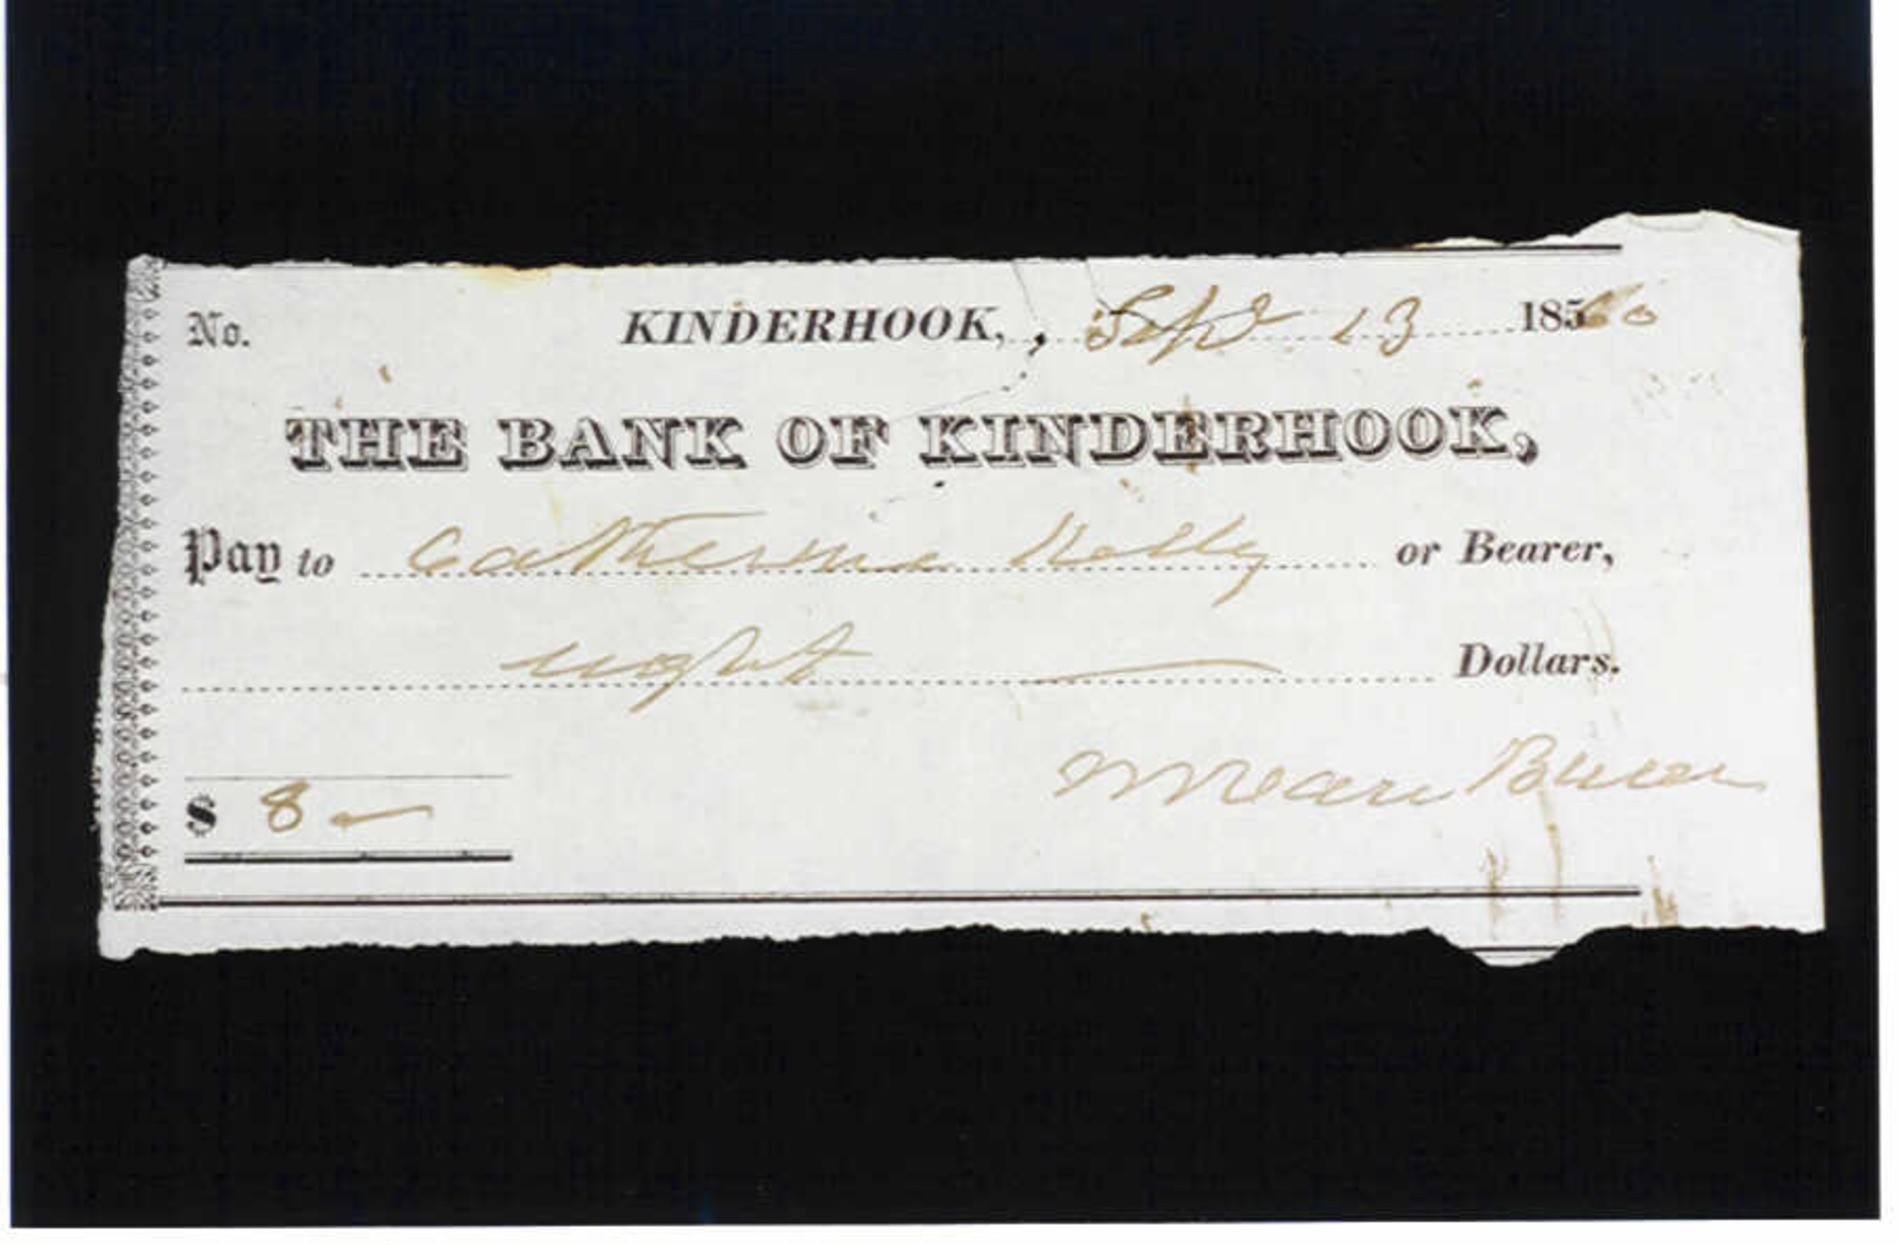 No. KINDERHOOK, Sept 13 1860
THE BANK OF KINDERHOOK,
Pay to Catherine Kelly or Bearer,
eight Dollars.
$ 8 —
M Van Buren